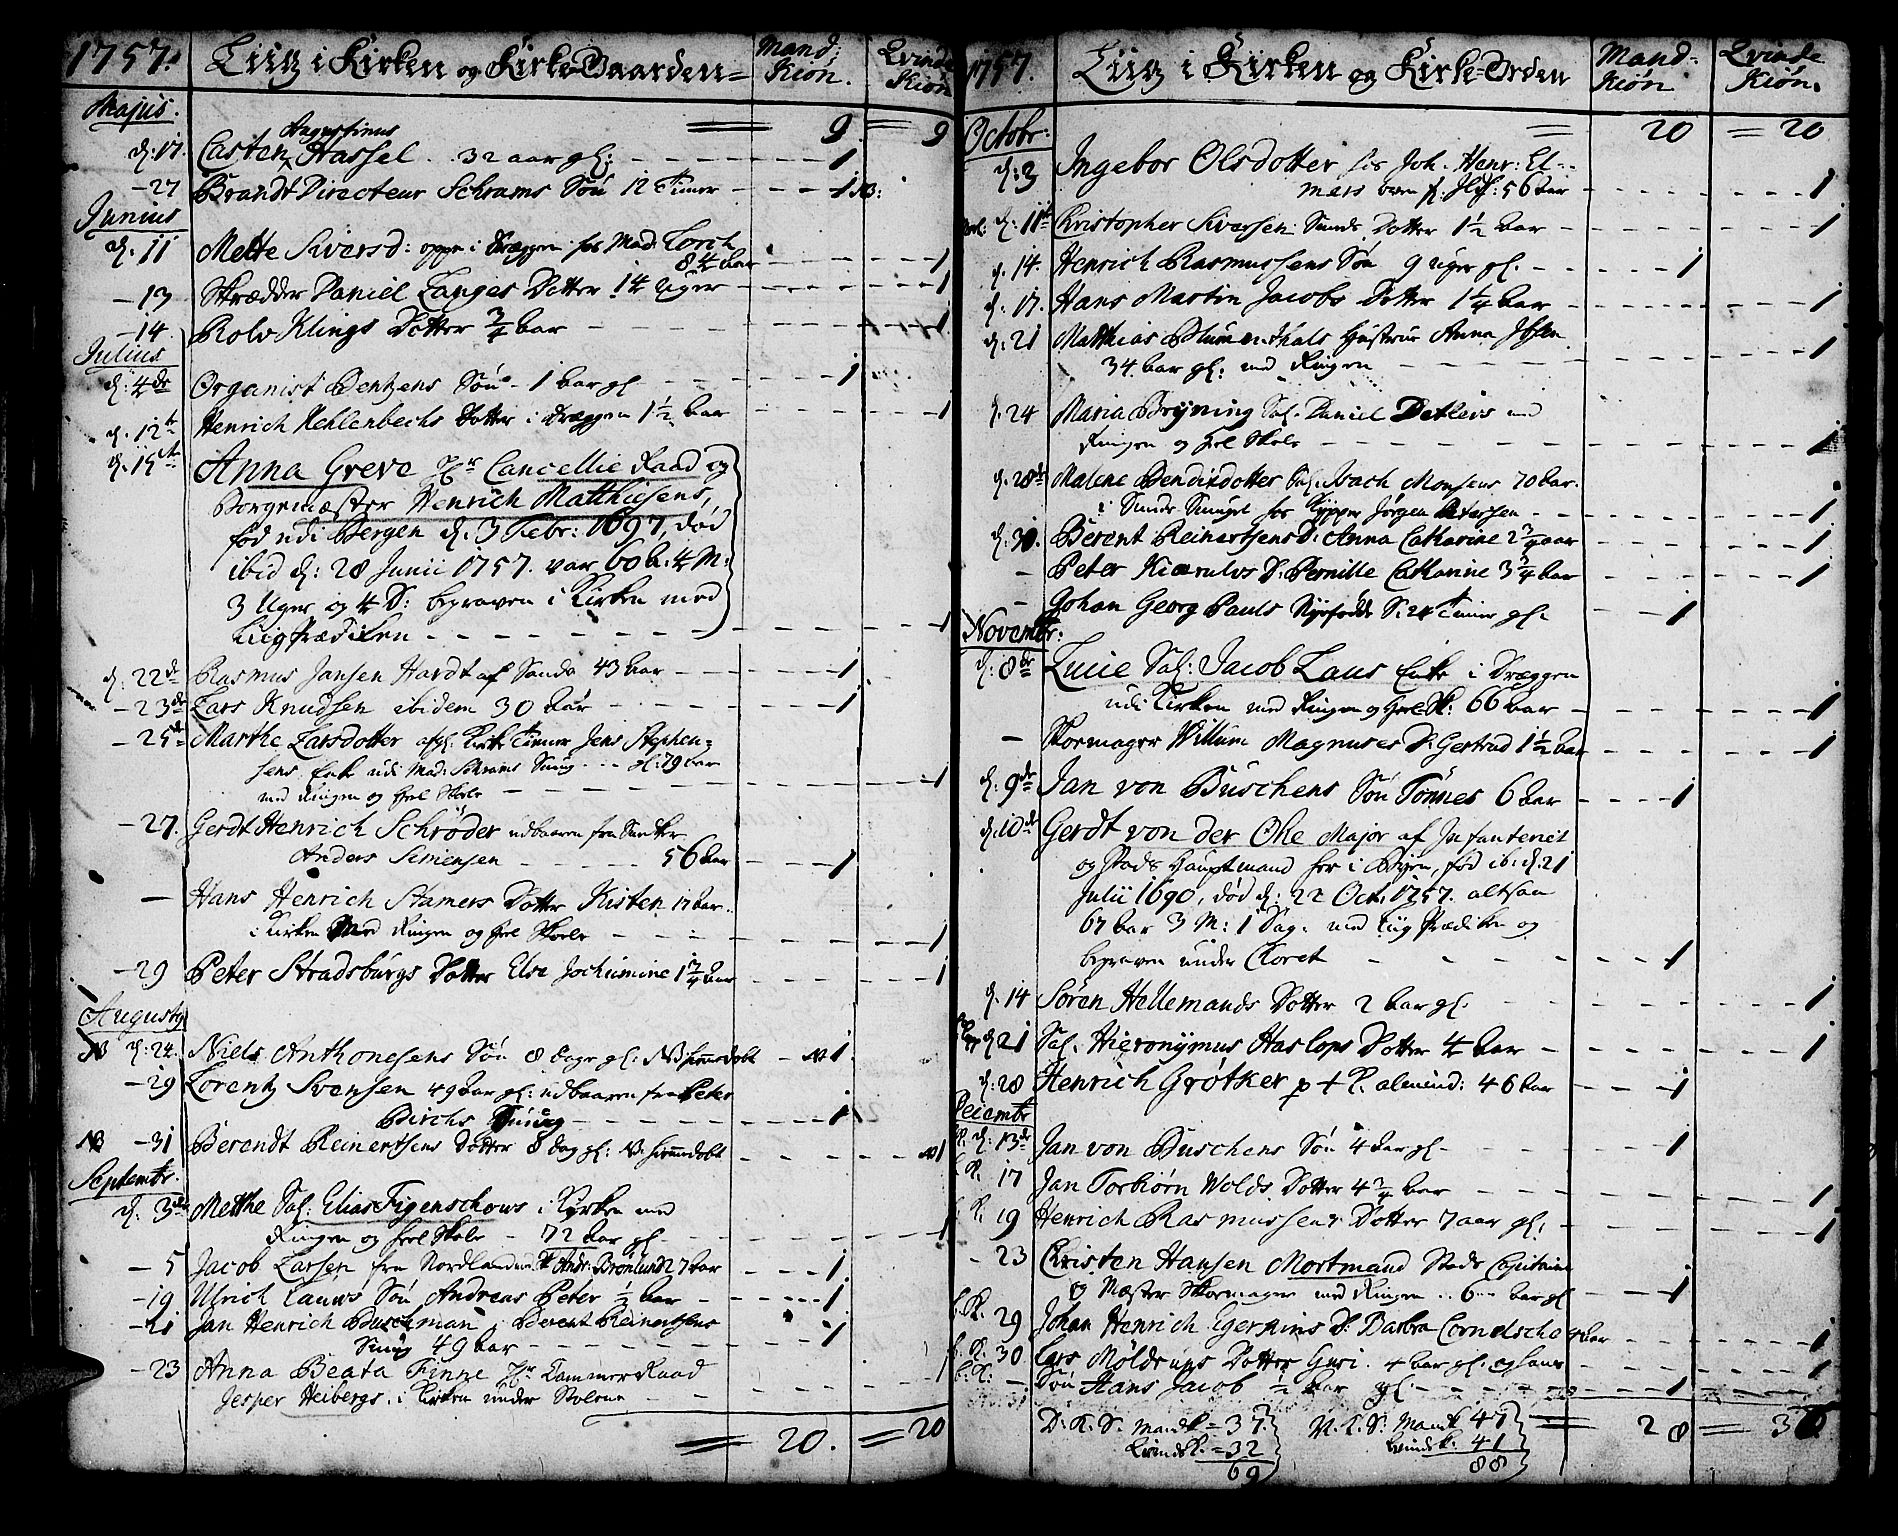 1757. Liig i Kirken og Kirke Gaarden= Mand: Kiøn. Qvinde Kiøn
Majus. 9 = 9
Augustinus
d. 17. Casten Hassel. 32 aar gl: - - - 1
- 27 Brandt Directeur Schrams Søn 12 Timer - - - 1
Junius
d. 11 Mette Siversd: oppe i Dræggen hos Mad: Lorch
8¼ Aar - - - 1
- 13 Skrædder Daniel Langes Dotter 14 Uger - - - 1
- 14. Rolv Klings Dotter ¾ Aar - - - 1
Julius
d. 4de Organist Bentzens Søn - 1 Aar gl - - - 1
d. 12te Henrich Mehlenbechs Dotter i Dræggen 1½ Aar - - - 1
d. 15de Anna Greve Hr Cancellie Raad og
Borgemæster Henrich Matthiesens,
fød udi Bergen d. 3 Febr: 1697, død
ibid d: 28 Junii 1757. var 60 A: 4 M:
3 Uger og 4 D: begraven i Kirken med
Liig Prædiken - - - 1
d: 22de Rasmus Jansen Hardt af Sanda 43 Aar - - - 1
- 23de Lars Knudsen ibidem 30 Aar - - - 1
- 25de Marthe Larsdotter Jens Stephen=
sens Enke udi Mad: Schrams Smug - - - gl: 79 aar
med Ringen og heel Skole - - - 1
- 27. Gerdt Henrich Schrøder udbaaren fra
Anders Semensen - - - 56 Aar - - - 1
— Hans Henrich Stamers Dotter Kisten 17 Aar..
i Kirken Med Ringen og heel Skole - - - 1
- 29 Peter Stradsburgs Dotter Else Jochumine 1¾ Aar - - - 1
Augusty
NB d: 24. Niels Anthonesens Søn 8 dage gl: NB hiemedøbt - N 1
- 29 Lorentz Svensen 49 Aar gl: udbaaren fra Peter
Birchs Smug - - - 1
NB - 31 Berendt Reinertsens Dotter 8 dag gl: NB. hiemedøbt - - - N 1
Septembr.
d. 3de Metthe Sal: Elias Figenschows i Kirken med
Ringen og heel Skole - 72 Aar gl - - - 1
- 5 Jacob Larsen fra Nordlandene Andr: Brønlund 27 Aar - - - 1
- 19 Ulrich Lauws Søn Andreas Peter ½ Aar - - - 1
- 21 Jan Henrich Buschman, i Berent Reinertsens
Smug 49 Aar - - - 1
- 23 Anna Beata Finne Hr Cammer Raad
Jesper Heibergs. i Kirken under Stolene - - - 1
= 20. = 20
1757. Liig i Kirken og Kirke=Orden Mand= Kiøn Qvinde Kiøn.
Octobr: = 20 = 20
d: 3 Ingebor Olsdotter hos Joh. Henr: El-
mers 56 Aar - - - 1
d: 11te Christopher Siversen Sunds Dotter 1½ Aar - - - 1
d. 14. Henrich Rasmussens Søn 9 Uger gl. - - - 1
d. 17. Hans Martin Jacobs Dotter 1¼ Aar - - - 1
d: 21 Matthias Blumenthals Hustrue Anna Ibsen
34 Aar gl: med Ringen - - - 1
d. 24 Maria Bryning Sal. Daniel Detlevs med
Ringen og heel Skole - - - 1
d. 28de Malene Bendixdotter Sal. Isach Monsens 70 Aar.
i Sunds Smuget hos Kypper Jørgen Petersen - - - 1
d: 30. Berent Reinertsens D: Anna Catharine 2¾ aar - - - 1
- Peter Kierulvs D: Pernille Catharine 3¾ Aar - - - 1
- Johan Georg Pauls Nyefødde S: 24 Timer gl. - - - 1
Novembr:
d: 8de Lucie Sal: Jacob Laus Enke i Dræggen
udi Kirken med Ringen og Heel Sk: 66 Aar - - - 1
- Skomager Willum Magnuses D: Gertrud 1½ Aar - - - 1
d: 9de Jan von Büschens Søn Tønnes 6 Aar - - - 1
d. 10de Gerdt von der Ohe Major af Infanteriet
og Stads Hauptmand her i Byen, fød ib: d: 21
Julii 1690, død d: 22 Oct. 1757. altsaa
67 Aar 3 M: 1 Dag. med Liig Prædiken og
begraven under Choret - - - 1
d. 14 Søren Hellemands Dotter 2 Aar gl. - - - 1
d 21 Sal. Hieronymus Haslops Dotter 4 Aar - - - 1
d: 28 Henrich Grøtker p + K. almind: 46 Aar - - - 1
Decembr
d: 13de Jan von Buschens Søn 4 Aar gl - - - 1
17 Jan Torbiørn Wolds Dotter 4¾ Aar - - - 1
19 Henrich Rasmussens Dotter 7 aar gl: - - - 1
- 23 Christen Hansen Mortmand Stads Capitain
og Mæster Skomager med Ringen .. 6-- Aar gl - - - 1
29 Johan Henrich Egerkins D: Barbra Cornelscha 4 Aar - - - 1
30 Lars Møldrups Dotter Guri. 4 Aar gl. og hans - - - 1
- Søn Hans Jacob ½ Aar gl. - - - 1
D: K. S. Mandk = 37 N. K. S: Mank 47 = 28 = 30
Qvindk. = 32 Qvindk. 41
69 88